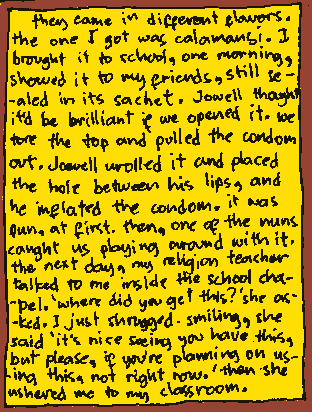 they came in different flavors.
the one I got was calamansi. I
brought it to school, one morning,
showed it to my friends, still se-
-aled in its sachet. Jowell thought
it'd be brilliant if we opened it. we
tore the top and pulled the condom
out. Jowell unrolled it and placed
the hole between his lips, and
he inflated the condom. it was
fun, at first. then, one of the nuns
caught us playing around with it.
the next day, my religion teacher
talked to me inside the school cha-
-pel. 'where did you get this?' she as-
-ked. I just shrugged. smiling, she
said 'it's nice seeing you have this,
but please, if you're planning on us-
-ing this, not right now.' then she
ushered me to my classroom.